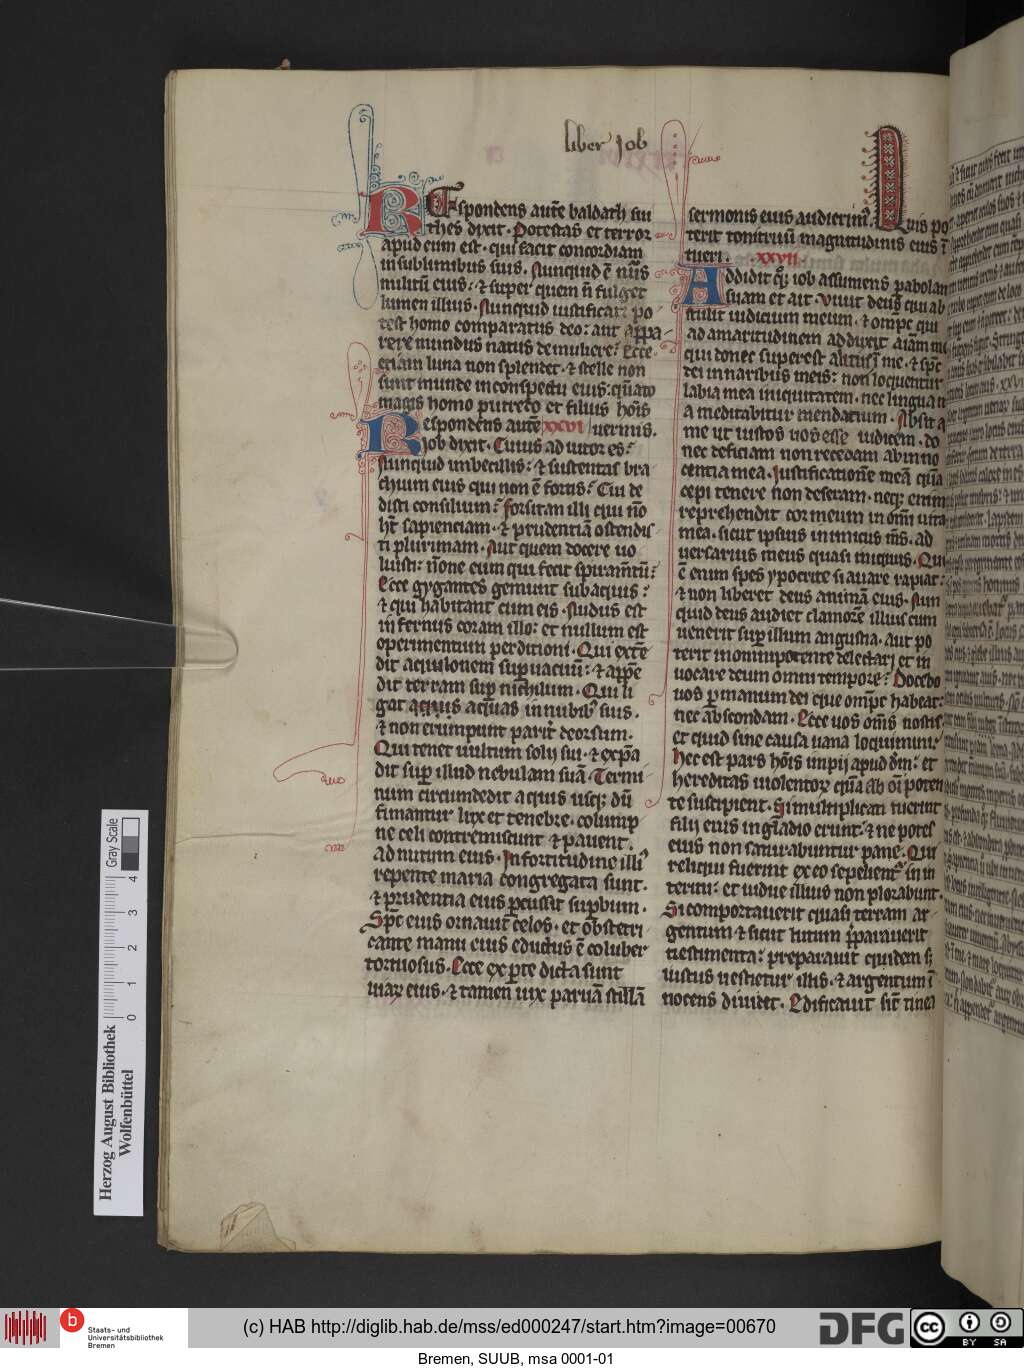 liber Job
REspondens autē baldath sui
thes dixit · Potestas et terror
apud eum est · qui facit concordiam
in sublimibus suis · Nunquid ē nūs
militū eius : ⁊ super quem n̄ fulget
lumen illius · Nunquid iustificari po
test homo comparatus deo : aut appa
rere mundus natus de muliere : Ecce
etiam luna non splendet · ⁊ stelle non
sunt munde in conspectu eius : quāto
magis homo putredo et filius hoīs
Respondens autē xxvi uermis .
Job dixit · Cuius adiutor es :
Nunquid imbecillis : ⁊ sustentas bra
chium eius qui non ē fortis : Cui de
disti consilium : forsitan illi qui nō
ht̄ sapienciam · ⁊ prudentiā ostendis
ti plurimam · Aut quem docere uo
luisti : nōne eum qui fecit spiramtū :
Ecce gygantes gemunt sub aquis :
⁊ qui habitant cum eis · Nudus est
infernus coram illo : et nullum est
operimentum perditioni · Qui extē
dit aquilonem sup uacuū : ⁊ appē
dit terram sup nichilum · Qui li
gat aquas in nubibꝰ suis ·
⁊ non erumpunt parit̄ deorsum ·
Qui tenet uultum solij sui · ⁊ expā
dit sup illud nebulam suā · Termi
num circumdedit aquis usqꝫ dū
finiantur lux et tenebre · colump
ne celi contremiscunt ⁊ pauent ·
ad nutum eius · In fortitudine illiꝰ
repente maria congregata sunt ·
⁊ prudentia eius pcussit supbum ·
Spc̄ eius ornauit celos · et obstetri
cante manu eius eductus ē coluber
tortuosus · Ecce ex pte dicta sunt
uiarꝫ eius · ⁊ tamen uix paruā stillā
sermonis eius audierimꝰ · Quis po
terit tonitruū magnitudinis eius ī
tueri . xxvii
Addidit qꝫ iob assumens pabolam
suam et ait · viuit deus qui ab
stulit iudicium meum · ⁊ omps qui
ad amaritudinem adduxit aīam mē
qui donec superest alitus ī me · ⁊ spc̄
dei in naribus meis : non loquentur
labia mea iniquitatem · nec lingua m
a meditabitur mendacium · Absit a
me ut iustos uos esse iudicem · do
nec deficiam non recedam ab inno
centia mea · Iustificationē meā quā
cepi tenere non deseram · neqꝫ enim
reprehendit cor meum in omī uita
mea · sicut ipsius inimicus mīs · ad
uersarius meus quasi iniquus · Que
ē enim spes ypocrite si auare rapiat :
⁊ non liberet deus animā eius · Nun
quid deus audiet clamorē illius cum
uenerit sup illum angustia · Aut po
terit in omnipotente delectari et in
uocare deum omni tempore : Docebo
uos p manum dei que omps habeat :
nec abscondam · Ecce uos omīs nostis
et quid sine causa uana loquimini :
Hec est pars hoīs impij apud dm̄ : et
hereditas uiolentorꝫ quā ab oī poten
te suscipient · Si multiplicati fuerint
filij eius in gladio erunt : ⁊ nepotes
eius non saturabuntur pane · Qui
reliqui fuerint ex eo sepelientꝰ in in
teritu : et uidue illius non plorabunt ·
Si comportauerit quasi terram ar
gentum ⁊ sicut lutum pparauerit
uestimenta : preparauit quidem s
iustus uestietur illis · ⁊ argentum ī
nocens diuidet · Edificauit sic̄ tinea
Herzog August Bibliothek
Wolfenbüttel
Gray Scale
0 1 2 3 4
b
Staats- und
Universitätsbibliothek
Bremen
(c) HAB http://diglib.hab.de/mss/ed000247/start.htm?image=00670
DFG
cc
BY SA
Bremen, SUUB, msa 0001-01